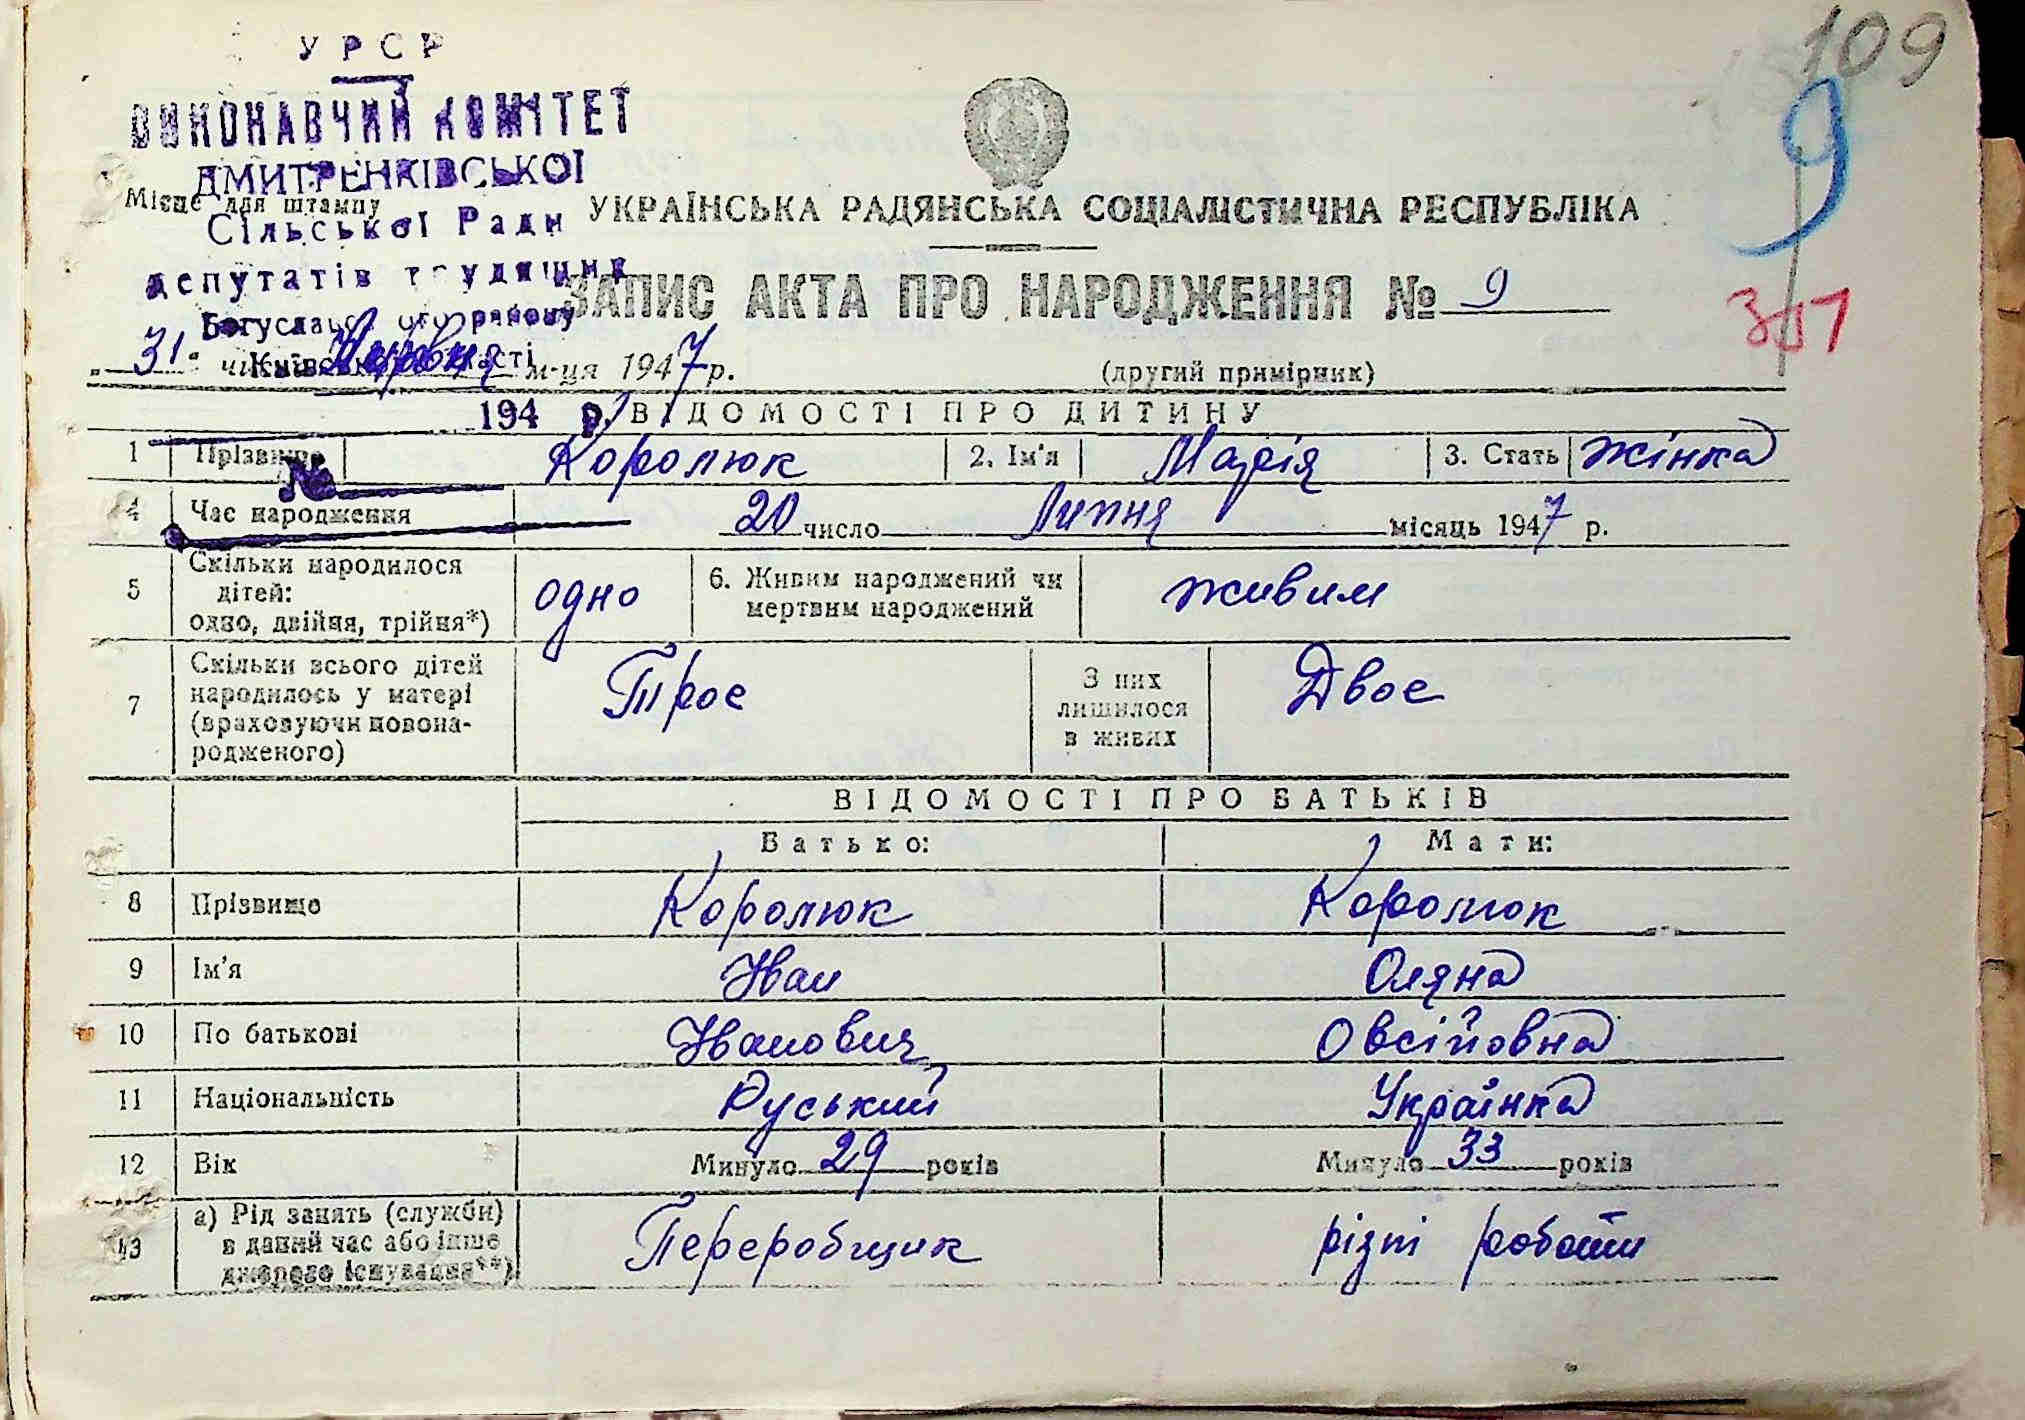 109
9
У Р С Р
ВИКОНАВЧИЙ КОМІТЕТ
ДМИТРЕНКІВСЬКОЇ
Місце для штампу
Сільської Ради
депутатів трудящих
Богуславського району
УКРАЇНСЬКА РАДЯНСЬКА СОЦІАЛІСТИЧНА РЕСПУБЛІКА
ЗАПИС АКТА ПРО НАРОДЖЕННЯ № 9
"31" м-ця 1947 р.
(другий примірник)
194 р.
№
ВІДОМОСТІ ПРО ДИТИНУ
1 Прізвище Королюк 2. Ім'я Марія 3. Стать жінка
4 Час народження 20 число Липня місяць 1947 р.
5 Скільки народилося дітей: одно, двійня, трійня*) одно 6. Живим народжений чи мертвим народжений живим
7 Скільки всього дітей народилось у матері (враховуючи новона-родженого) Троє З них лишилося в живих Двоє
ВІДОМОСТІ ПРО БАТЬКІВ
Батько: Мати:
8 Прізвище Королюк Королюк
9 Ім'я Іван Оляна
10 По батькові Іванович Овсійовна
11 Національність Руський Українка
12 Вік Минуло 29 років Минуло 33 років
13 а) Рід занять (служби) в даний час або інше джерело існування**) Переробщик різні роботи